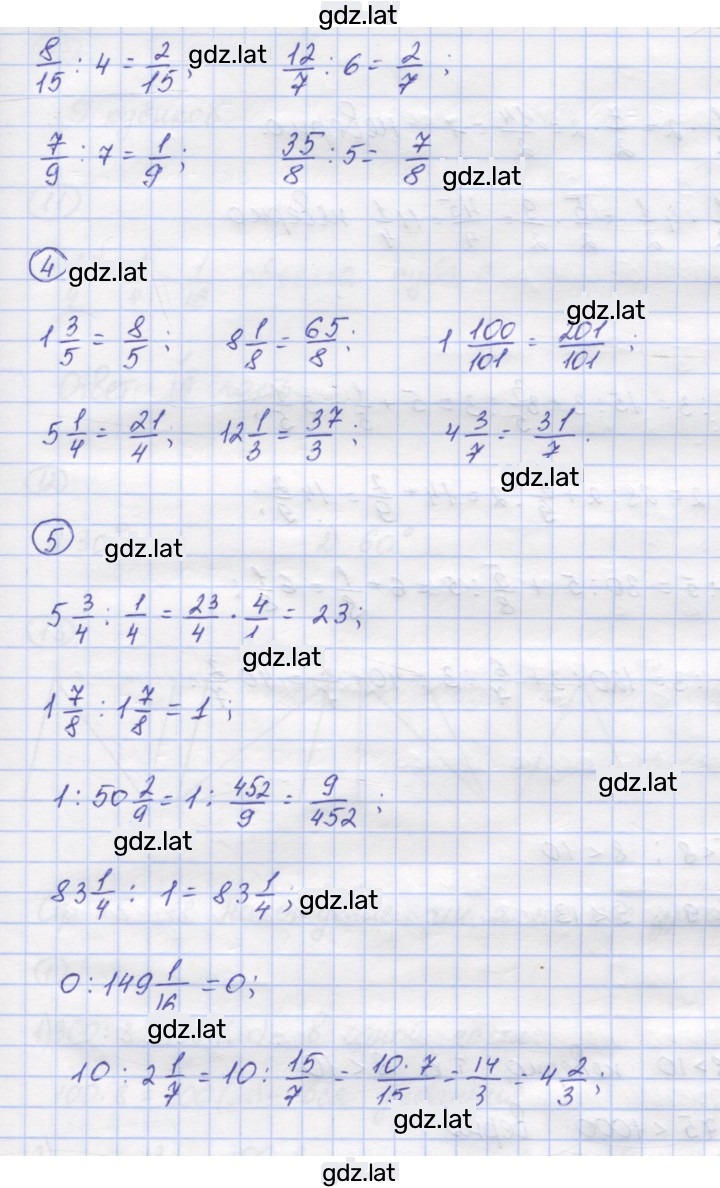 gdz.lat
8/15 : 4 = 2/15; gdz.lat 12/7 : 6 = 2/7;
7/9 : 7 = 1/9; 35/8 : 5 = 7/8 gdz.lat
4 gdz.lat
gdz.lat
1 3/5 = 8/5; 8 1/8 = 65/8; 1 100/101 = 201/101;
5 1/4 = 21/4; 12 1/3 = 37/3; 4 3/7 = 31/7.
gdz.lat
5 gdz.lat
5 3/4 : 1/4 = 23/4 · 4/1 = 23;
gdz.lat
1 7/8 : 1 7/8 = 1;
gdz.lat
1 : 50 2/9 = 1 : 452/9 = 9/452;
gdz.lat
83 1/4 : 1 = 83 1/4; gdz.lat
0 : 149 1/16 = 0;
gdz.lat
10 : 2 1/7 = 10 : 15/7 = 10·7/15 = 14/3 = 4 2/3;
gdz.lat
gdz.lat